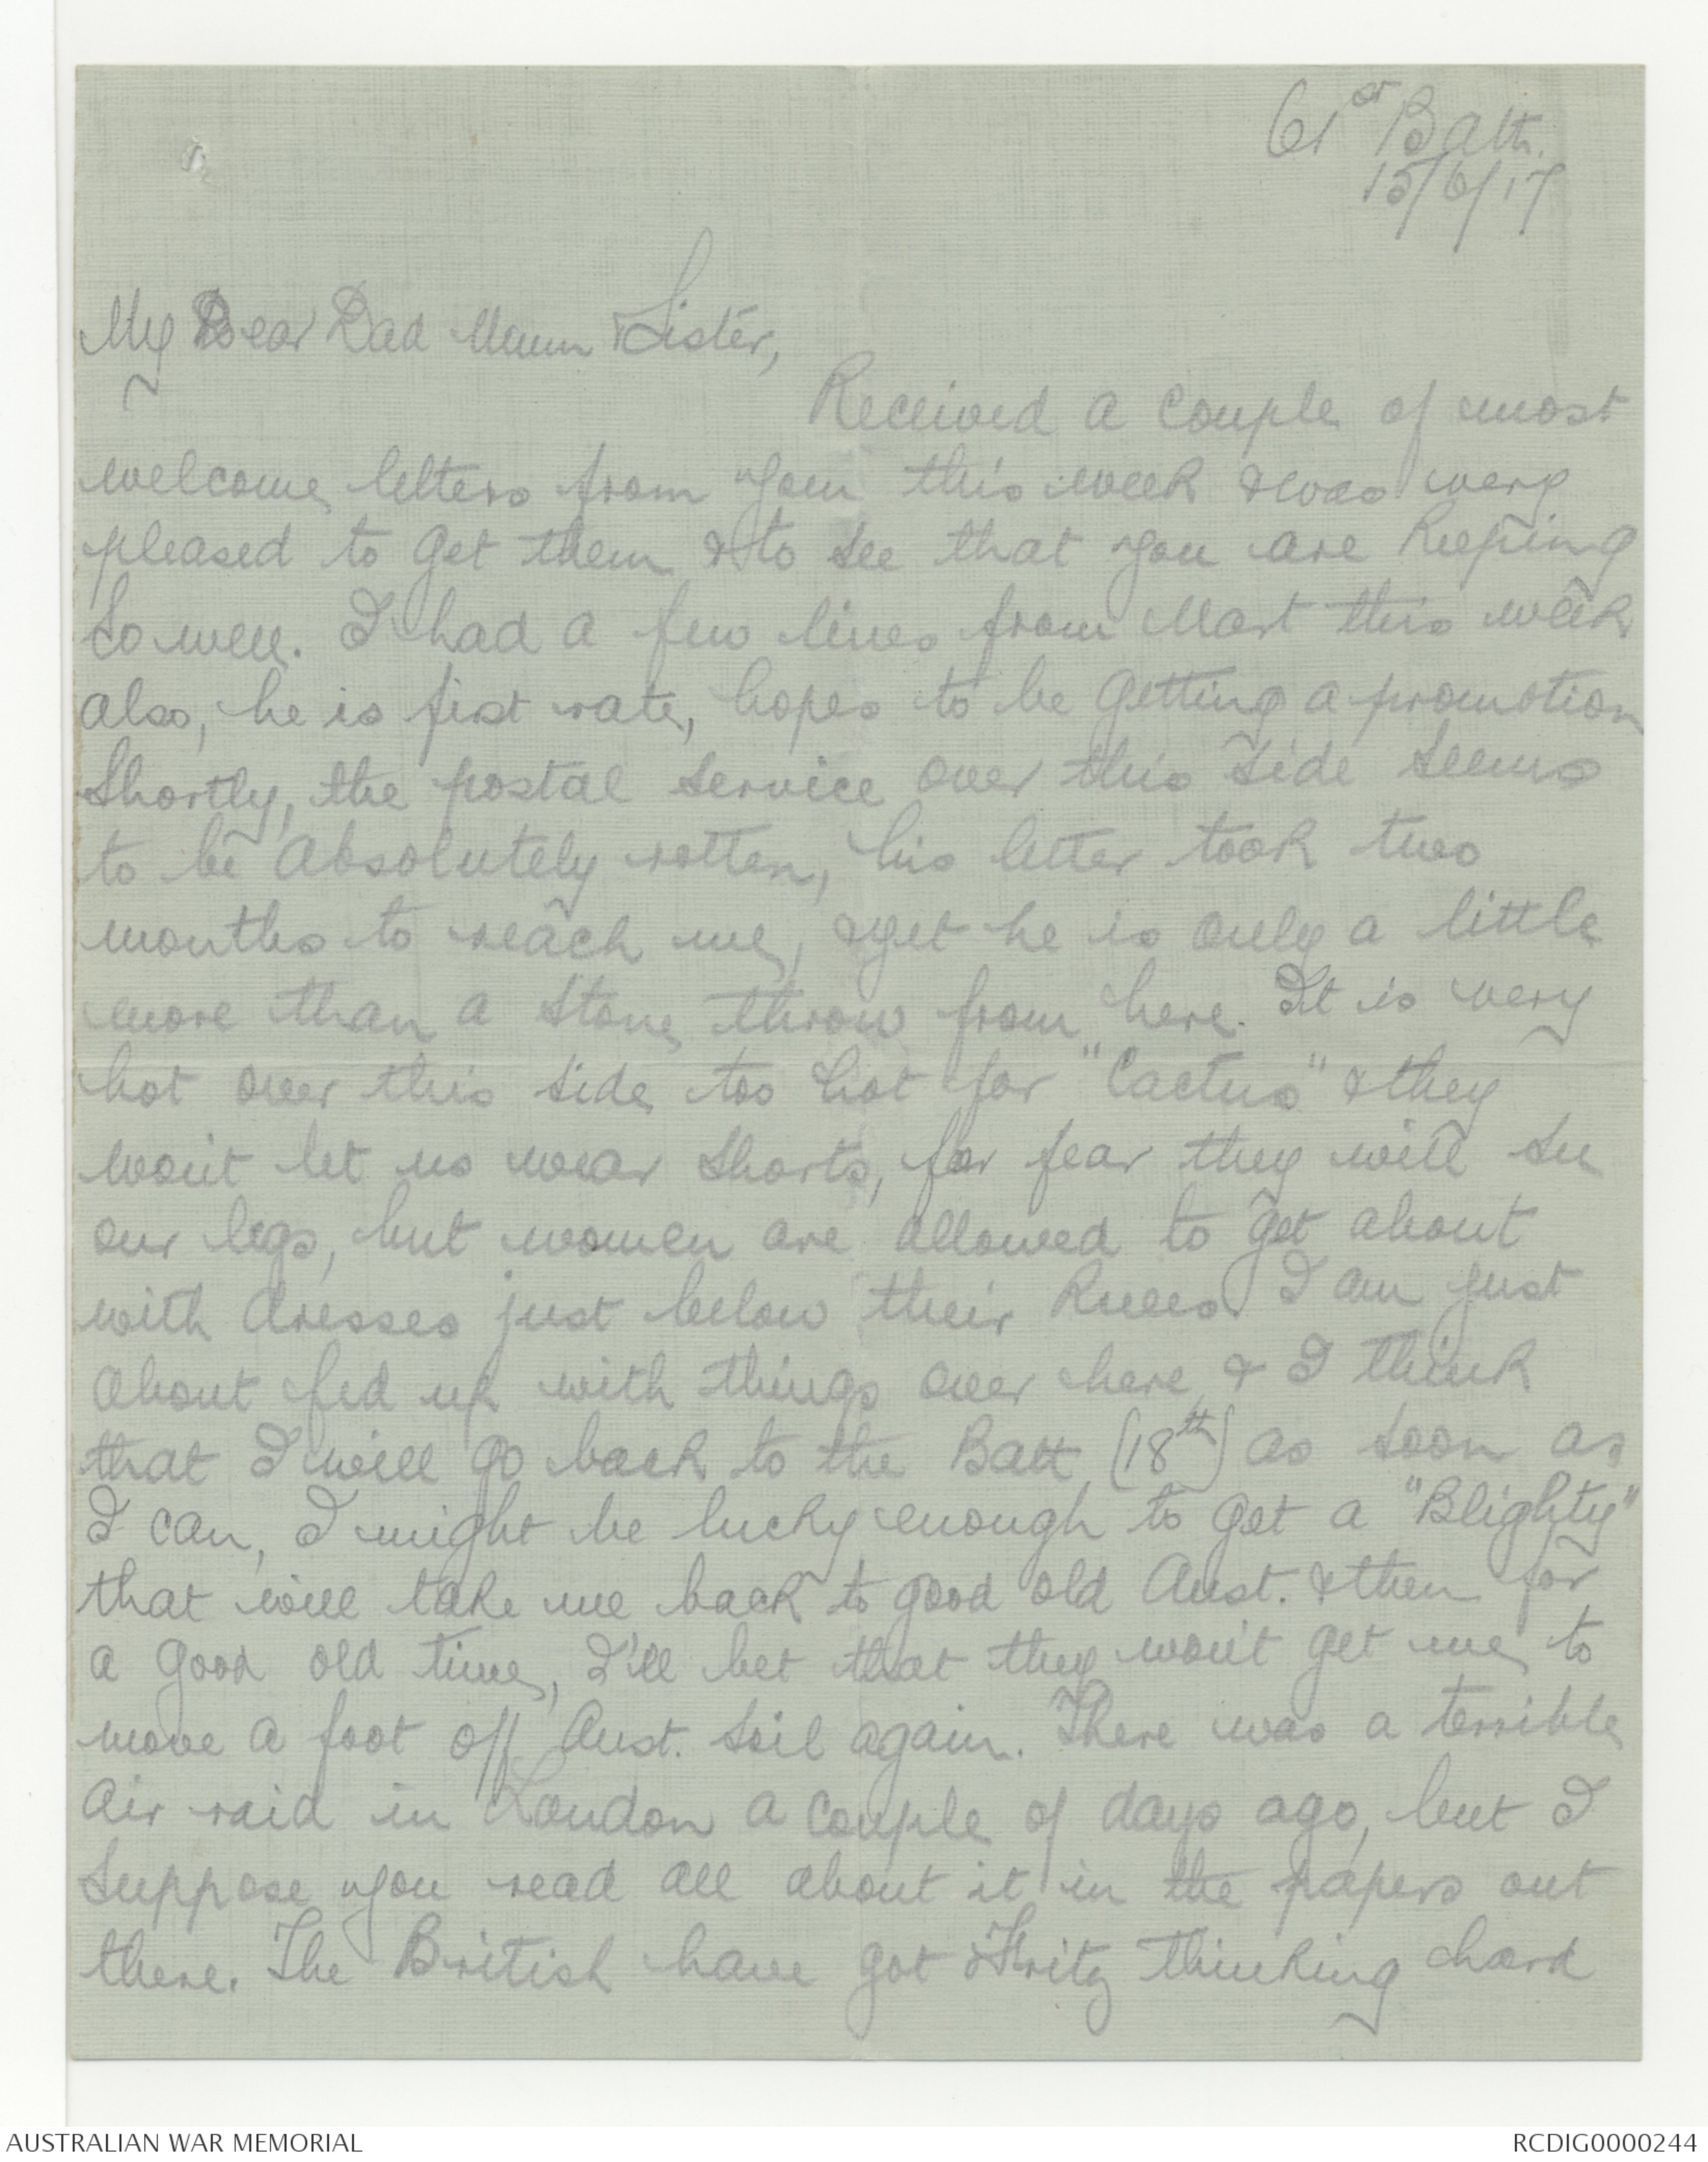 61st Batt.
15/6/17
My Dear Dad Mum & Sister,
Received a couple of most
welcome letters from you this week & was very
pleased to get them & to see that you are keeping
so well. I had a few lines from Mart this week
also, he is first rate, hopes to be getting a promotion
shortly, the postal service over this side seems
to be absolutely rotten, his letter took two
months to reach me, & yet he is only a little
more than a stone throw from here. It is very
hot over this side too hot for "Cactus" & they
won't let us wear shorts, for fear they will see
our legs, but women are allowed to get about
with dresses just below their knees. I am just
about fed up with things over here & I think
that I will go back to the Batt (18th) as soon as
I can, I might be lucky enough to get a "Blighty"
that will take me back to good old Aust. & then for
a good old time, I'll bet that they won't get me to
move a foot off Aust. soil again. There was a terrible
air raid in London a couple of days ago, but I
suppose you read all about it in the papers out
there. The British have got Fritz thinking hard
AUSTRALIAN WAR MEMORIAL
RCDIG0000244